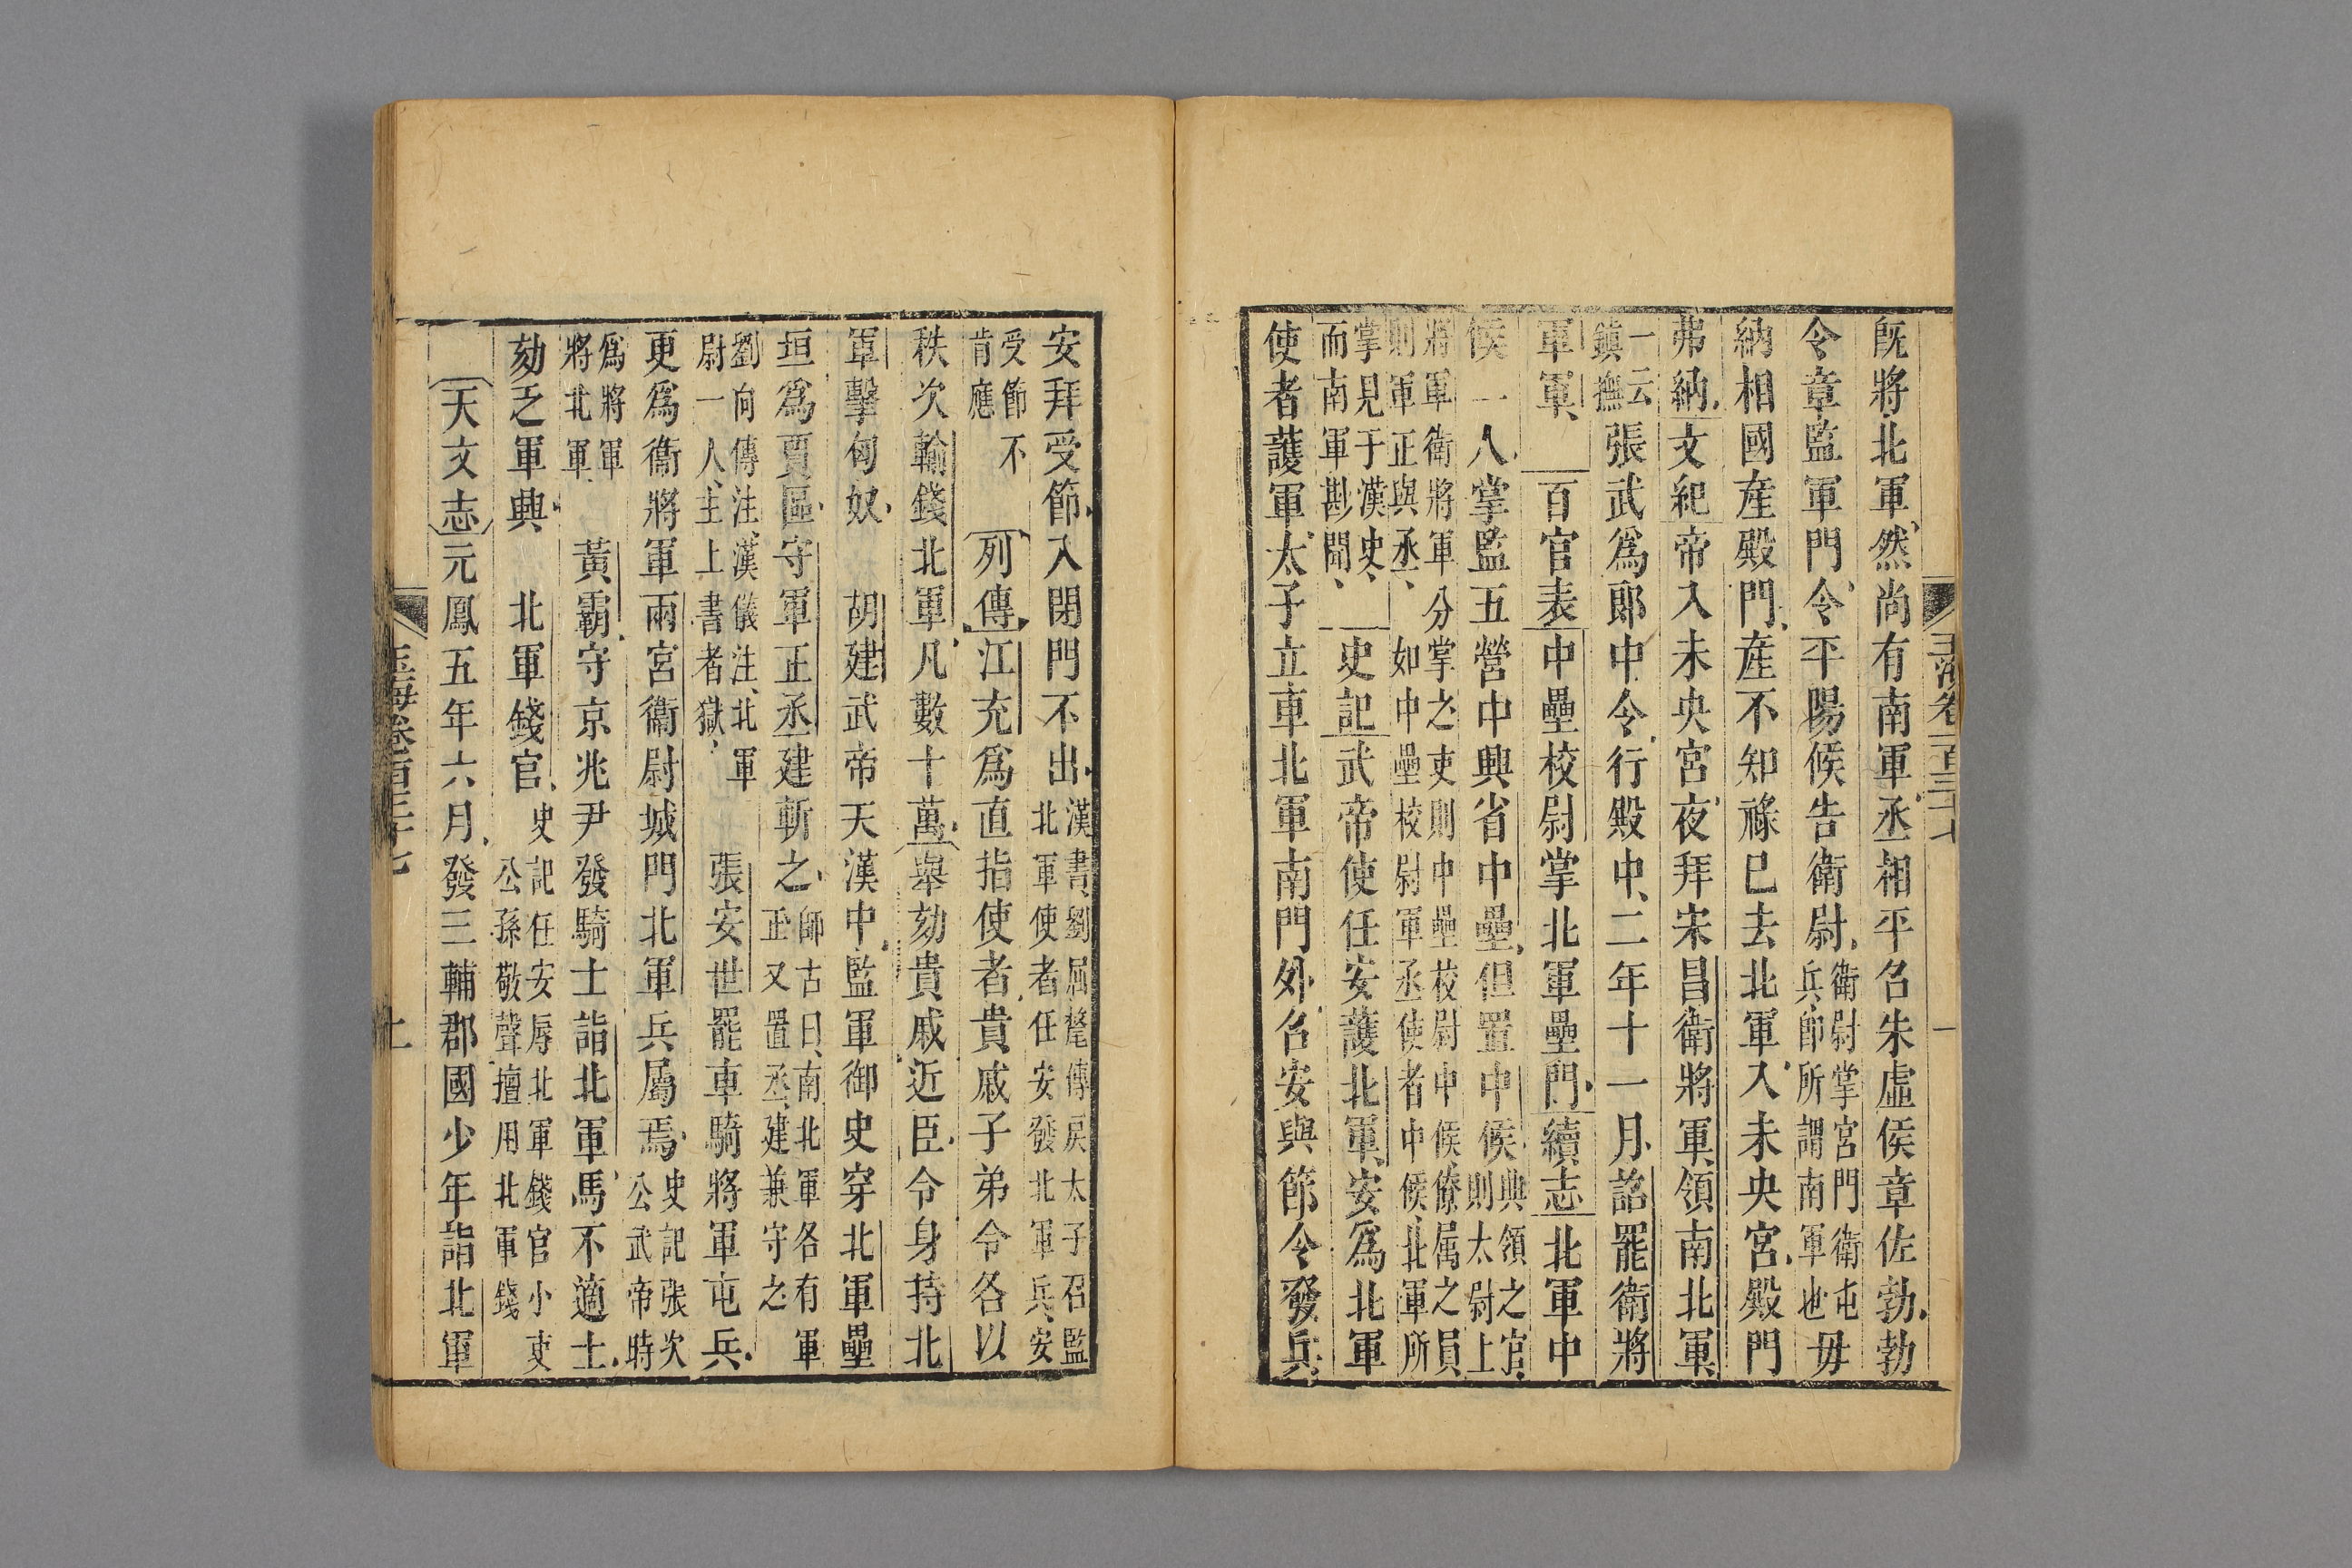 玉海卷一百三十七
一
既將北軍然尚有南軍丞相平召朱虛侯章佐勃勃
令章監軍門令平陽侯告衛尉衛尉掌宮門衛屯兵卽所謂南軍也毋
納相國產殿門產不知祿已去北軍入未央宮殿門
弗納文紀帝入未央宮夜拜宋昌衛將軍領南北軍
一云鎮撫張武爲郎中令行殿中二年十一月詔罷衛將
軍軍百官表中壘校尉掌北軍壘門續志北軍中
候一人掌監五營中興省中壘但置中候典領之官則太尉上
將軍衛將軍分掌之吏則中壘校尉中候僚属之員則軍正與丞如中壘校尉軍丞使者中候北軍所
掌見于漢史而南軍尠聞史記武帝使任安護北軍安爲北軍
使者護軍太子立車北軍南門外召安與節令發兵
安拜受節入閉門不出漢書劉屈氂傳戾太子召監北軍使者任安發北軍兵安
受節不肯應列傳江充爲直指使者貴戚子弟令各以
秩次輸錢北軍凡數十萬舉劾貴戚近臣令身持北
軍擊匈奴胡建武帝天漢中監軍御史穿北軍壘
垣爲賈區守軍正丞建斬之師古曰南北軍各有軍正又置丞建兼守之
劉向傳注漢儀注北軍尉一人主上書者獄張安世罷車騎將軍屯兵
更爲衞將軍兩宮衞尉城門北軍兵屬焉史記張次公武帝時
爲將軍將北軍黃霸守京兆尹發騎士詣北軍馬不適士
劾乏軍興北軍錢官史記任安辱北軍錢官小吏公孫敬聲擅用北軍錢
天文志元鳳五年六月發三輔郡國少年詣北軍
玉海卷一百三十七